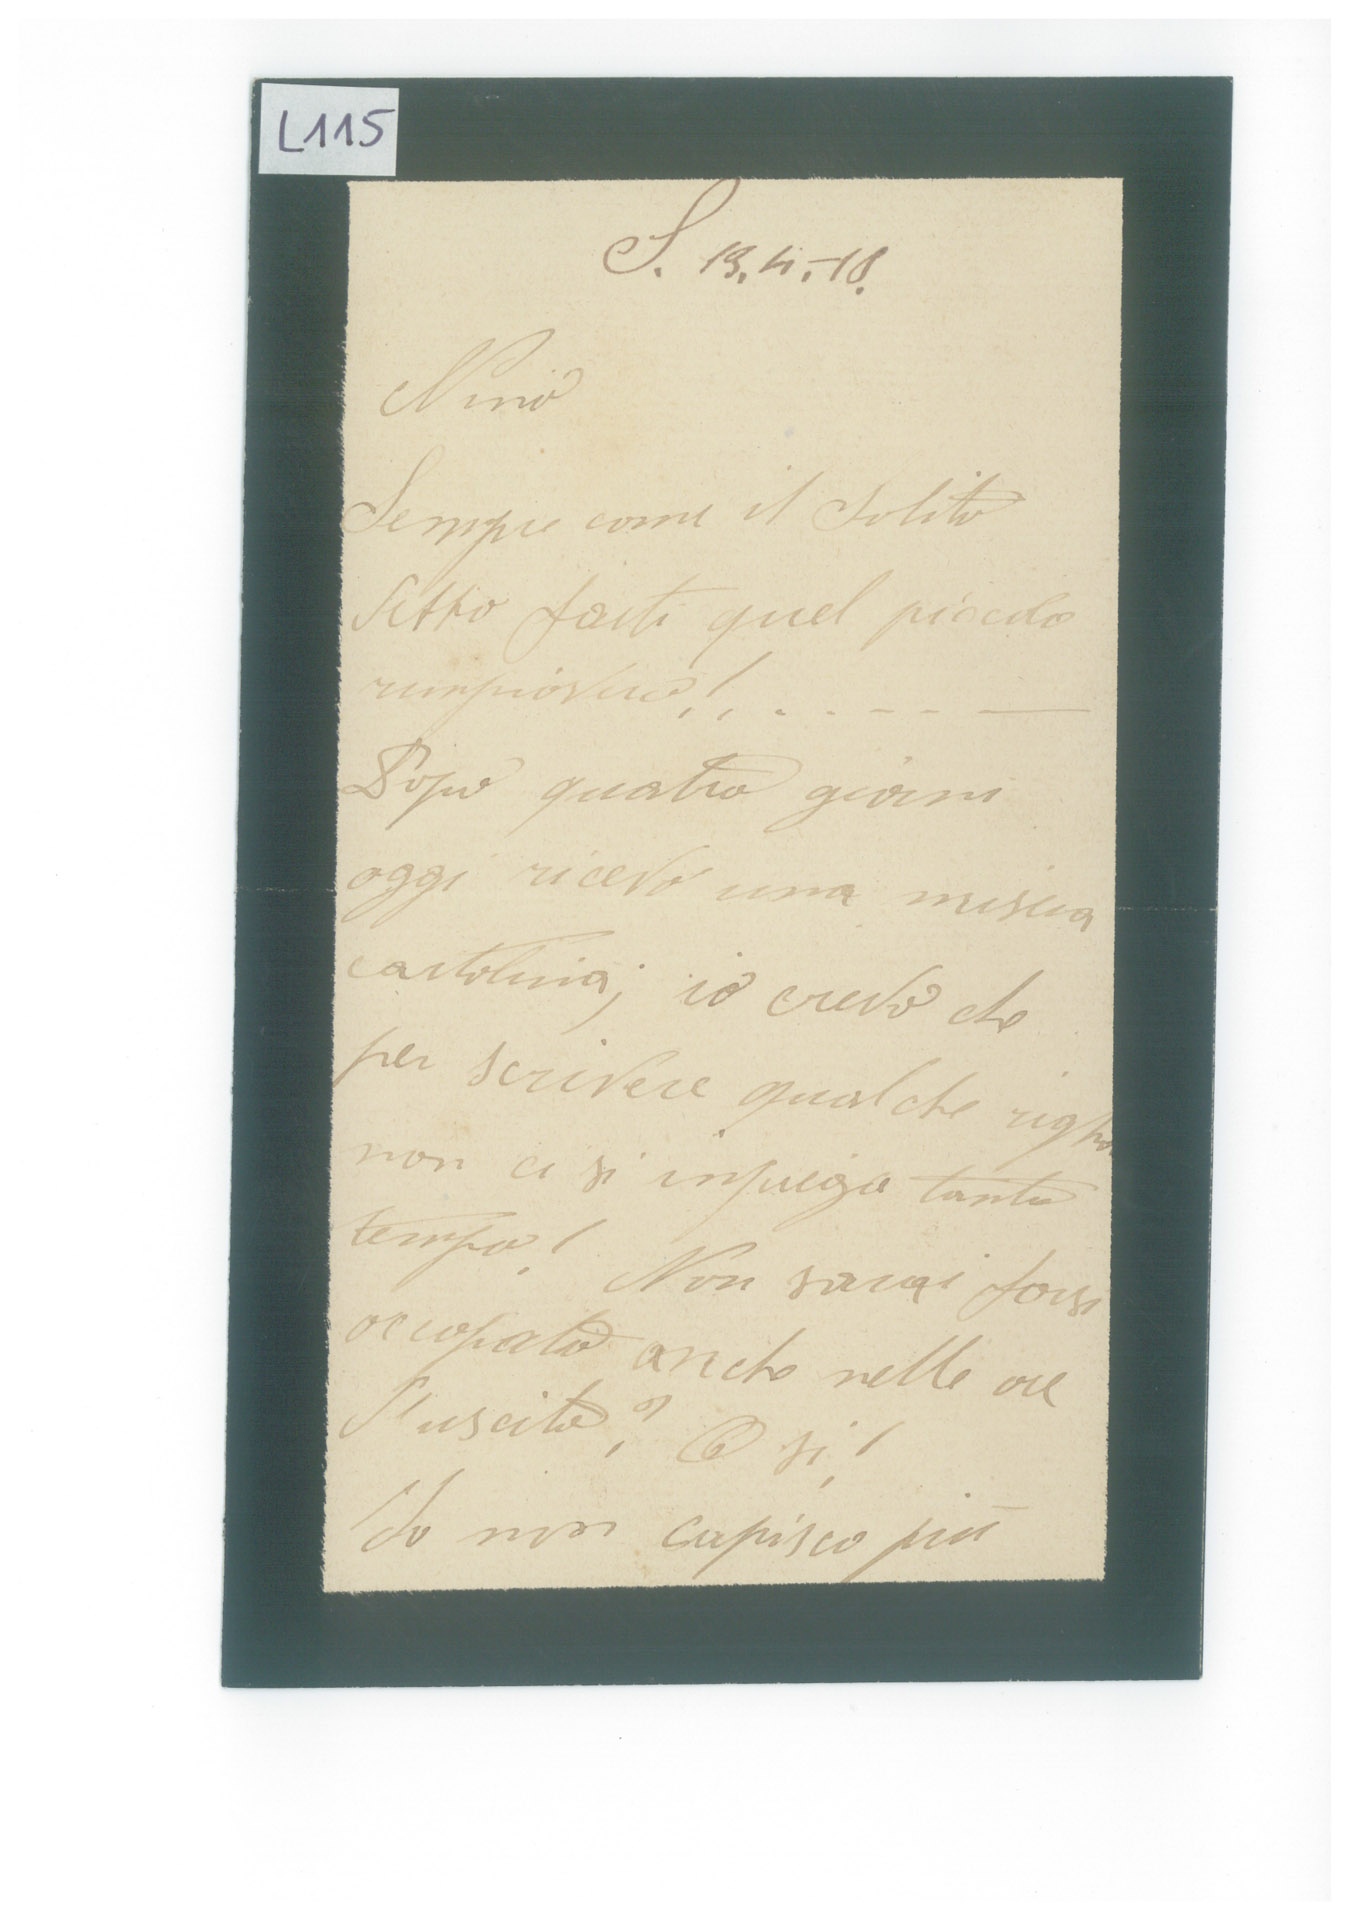 L115
S. 19.4.-18.
Nino
Sempre come il solito
farti quel piccolo
Dopo quatro giorni
oggi ricevo una misera
cartolina; io credo che
per scrivere qualche riga
non ci si impiega tanto
tempo! Non sarai forse
occupato anche nelle ore
d'uscita? O si!
Io non capisco più